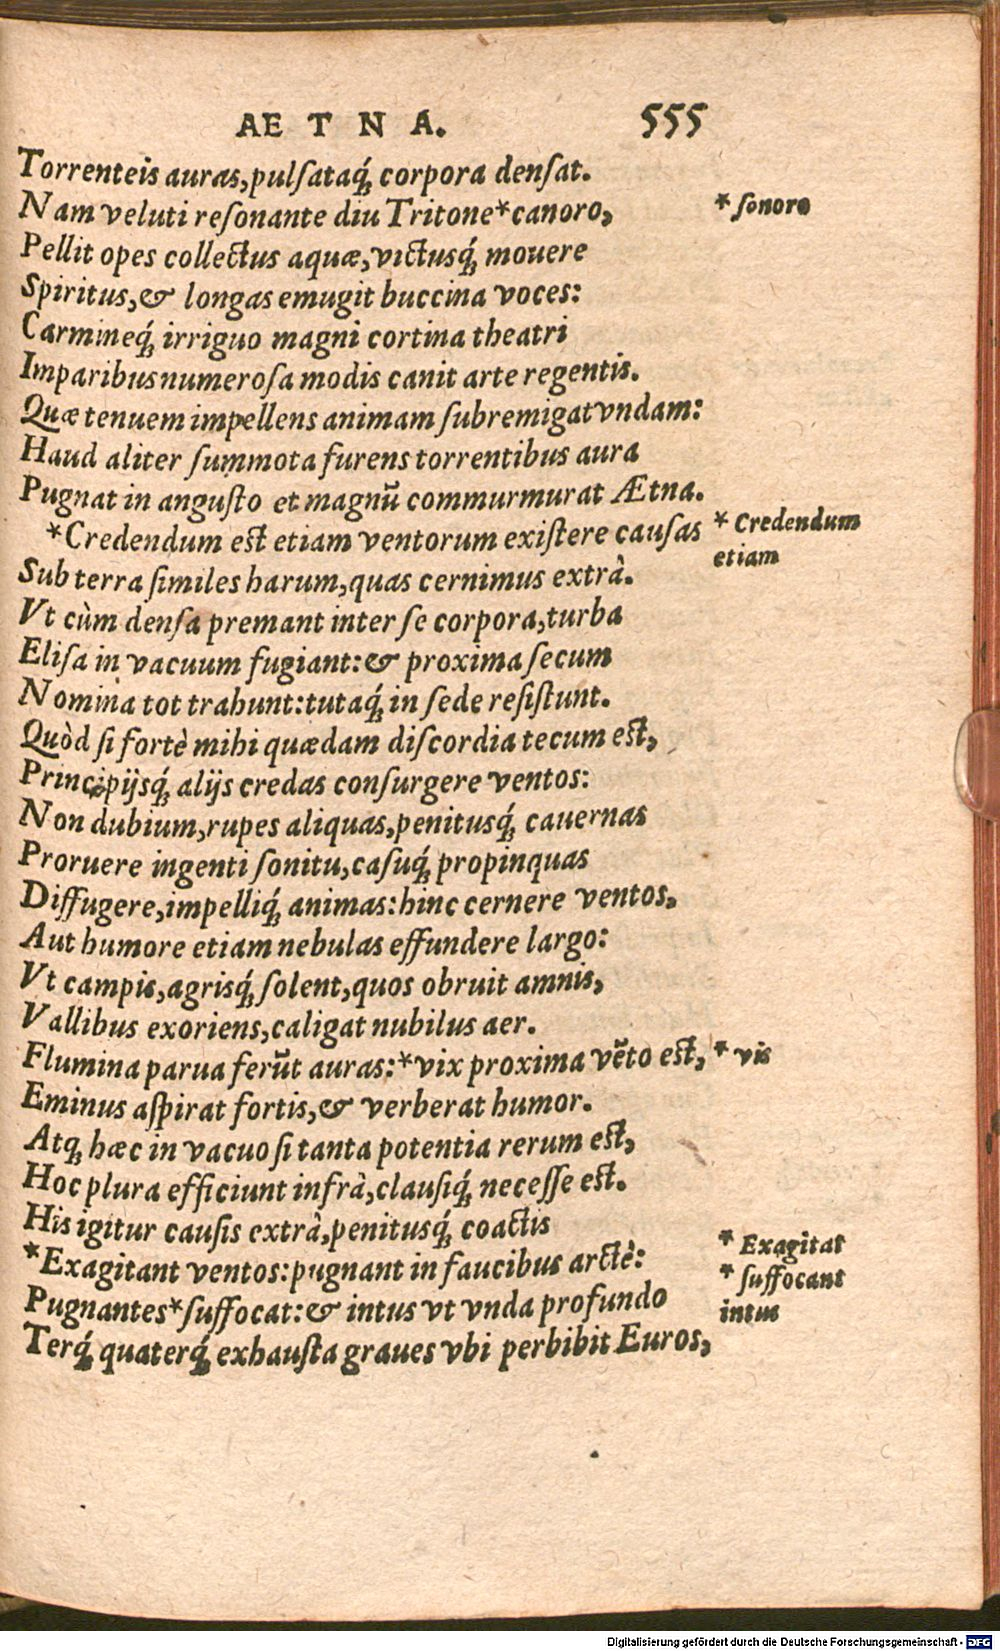 AETNA. 555
Torrenteis auras, pulſataq́; corpora denſat.
Nam veluti reſonante diu Tritone*canoro, * ſonoro
Pellit opes collectus aquæ, victusq́; mouere
Spiritus, & longas emugit buccina voces:
Carmineq́; irriguo magni cortina theatri
Imparibus numeroſa modis canit arte regentis.
Quæ tenuem impellens animam ſubremigat vndam:
Haud aliter ſummota furens torrentibus aura
Pugnat in anguſto et magnū commurmurat Ætna.
*Credendum est etiam ventorum exiſtere cauſas * Credendum
etiam
Sub terra ſimiles harum, quas cernimus extrà.
Vt cùm denſa premant inter ſe corpora, turba
Eliſa in vacuum fugiant: & proxima ſecum
Nomina tot trahunt: tutaq́; in ſede reſiſtunt.
Quòd ſi fortè mihi quædam diſcordia tecum est,
Principijsq́; alijs credas conſurgere ventos:
Non dubium, rupes aliquas, penitusq́; cauernas
Proruere ingenti ſonitu, caſuq́; propinquas
Diffugere, impelliq́; animas: hinc cernere ventos,
Aut humore etiam nebulas effundere largo:
Vt campis, agrisq́; ſolent, quos obruit amnis,
Vallibus exoriens, caligat nubilus aer.
Flumina parua ferūt auras: *vix proxima vēto est, * vis
Eminus aſpirat fortis, & verberat humor.
Atq; hæc in vacuo ſi tanta potentia rerum est,
Hoc plura efficiunt infrà, clauſiq́; neceſſe est.
His igitur cauſis extrà, penitusq́; coactis
*Exagitant ventos: pugnant in faucibus arctè: * Exagitat
Pugnantes*ſuffocat: & intus vt vnda profundo * ſuffocant
intus
Terq́; quaterq́; exhauſta graues vbi perbibit Euros,
Digitalisierung gefördert durch die Deutsche Forschungsgemeinschaft - DFG